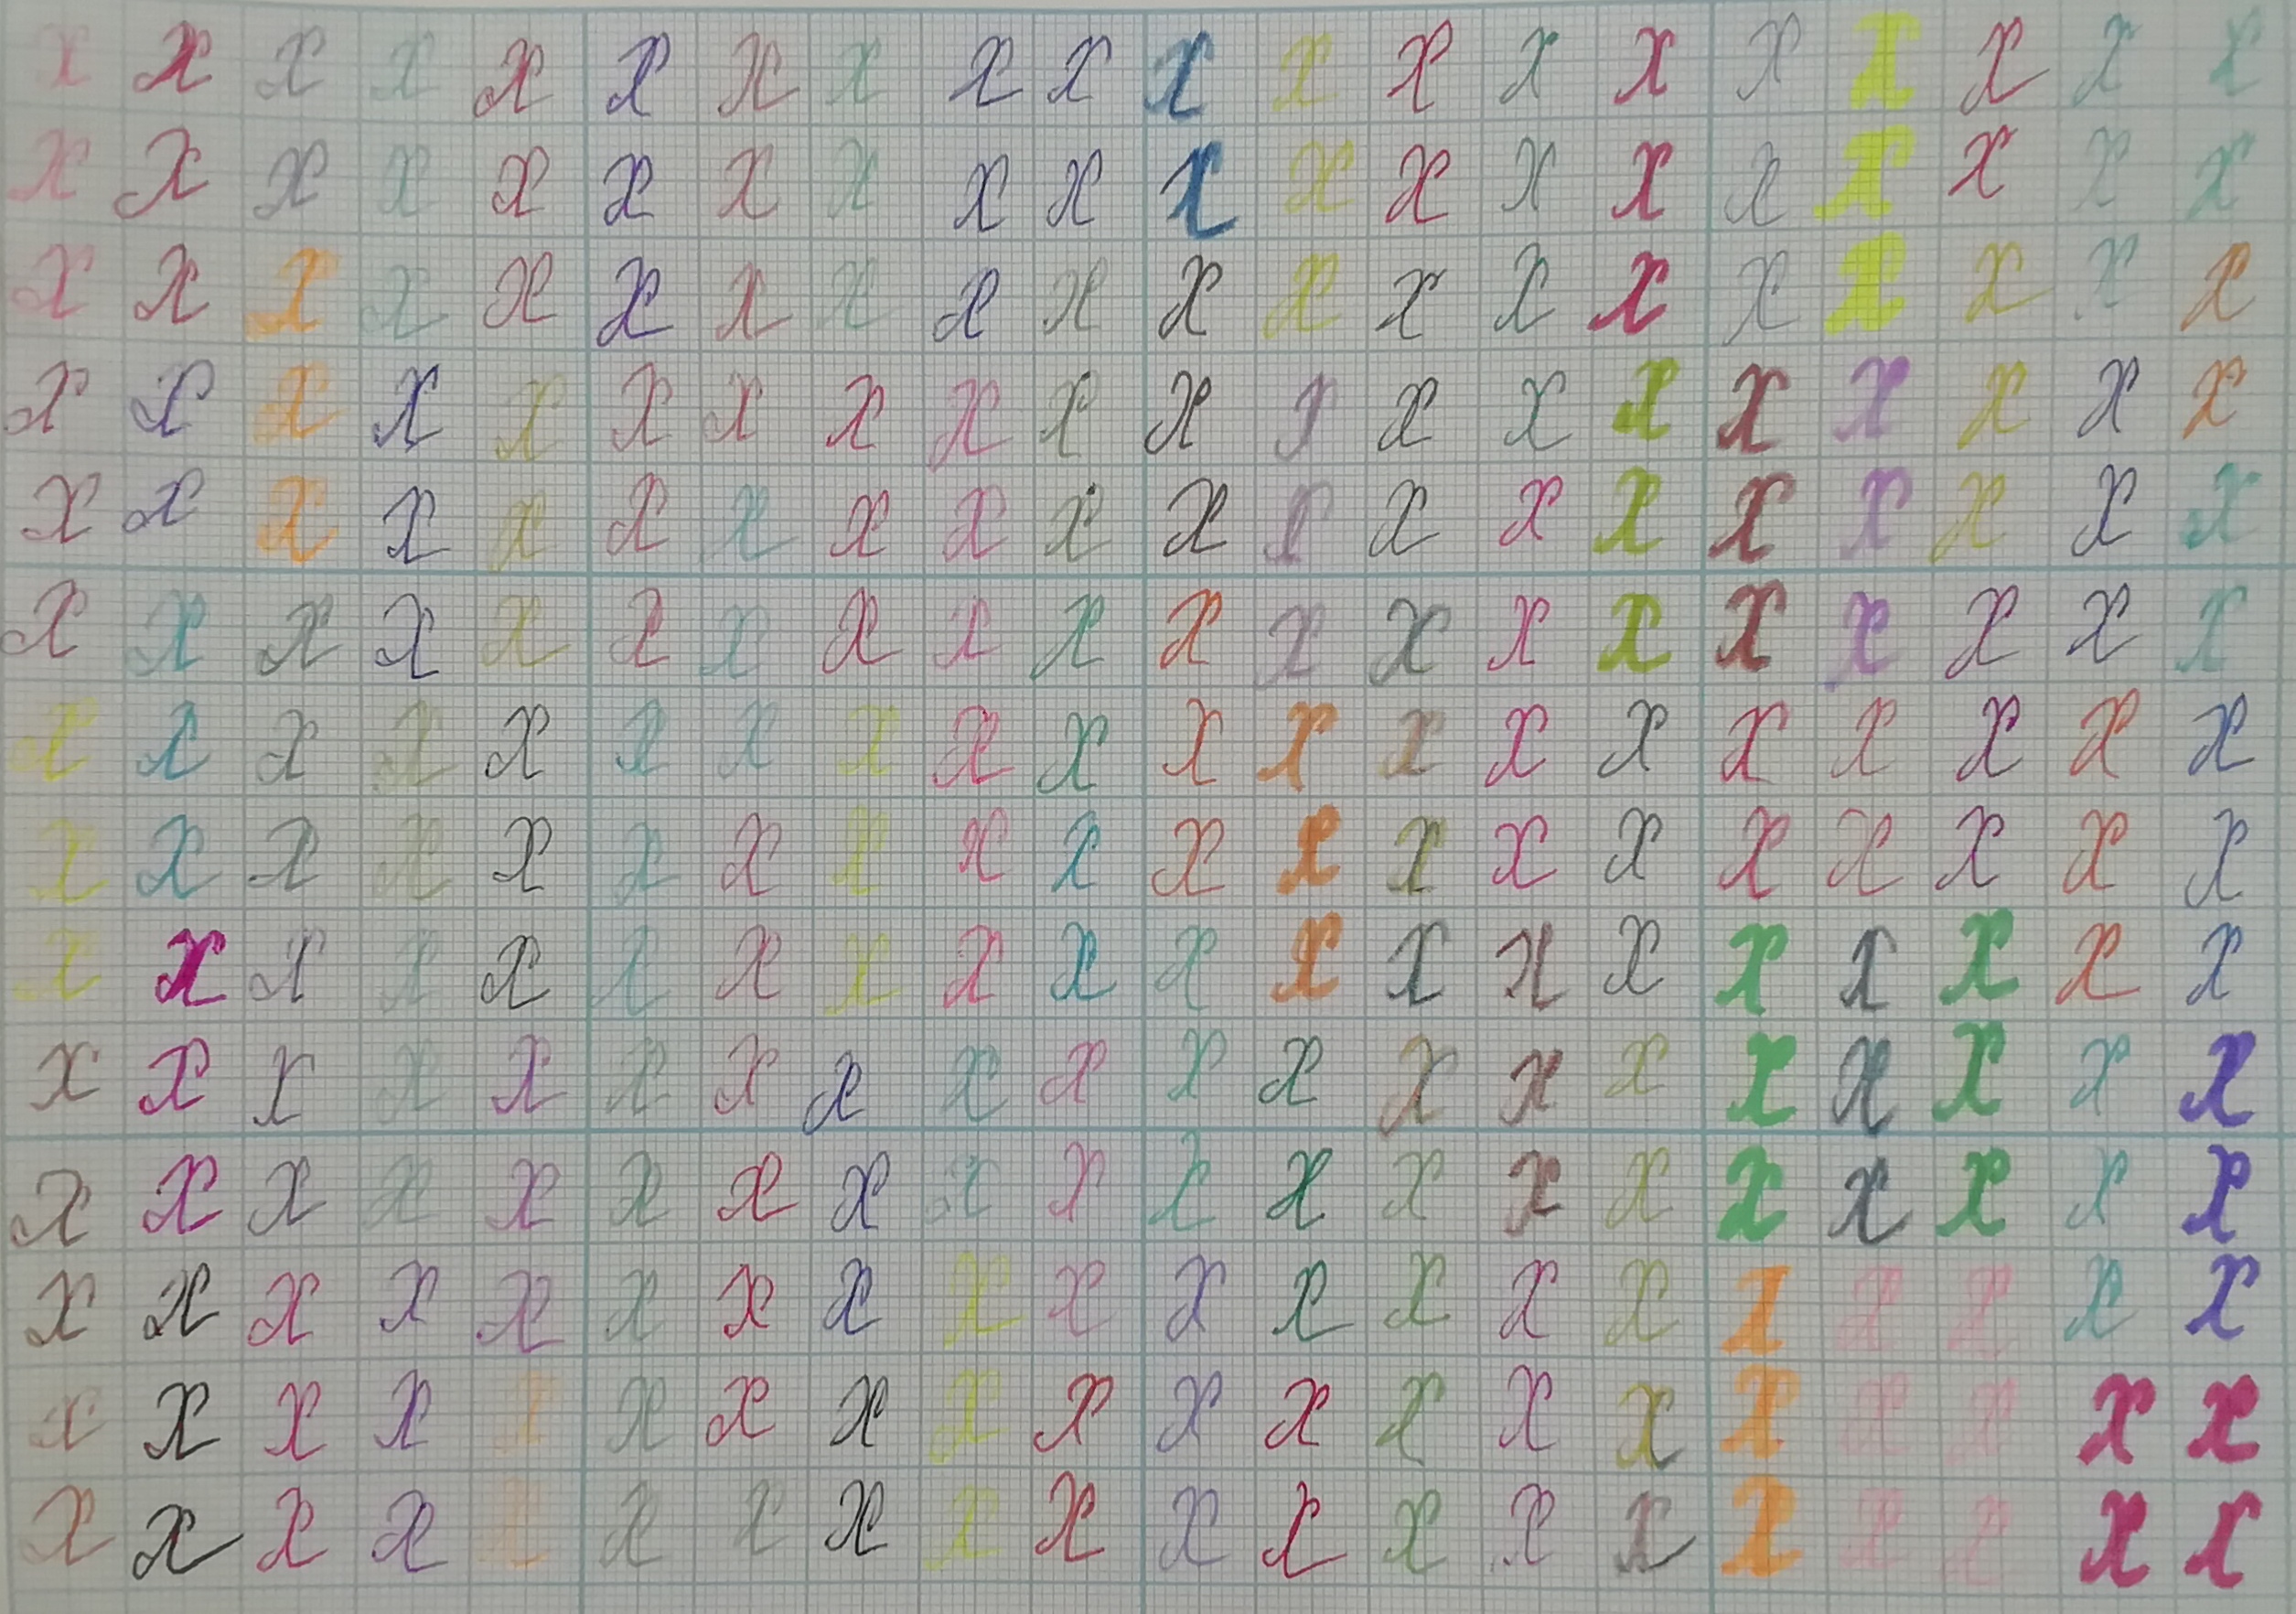 x x x x x x x x x x x x x x x x x x x x
x x x x x x x x x x x x x x x x x x x x
x x x x x x x x x x x x x x x x x x x x
x x x x x x x x x x x x x x x x x x x x
x x x x x x x x x x x x x x x x x x x x
x x x x x x x x x x x x x x x x x x x x
x x x x x x x x x x x x x x x x x x x x
x x x x x x x x x x x x x x x x x x x x
x x x x x x x x x x x x x x x x x x x x
x x x x x x x x x x x x x x x x x x x x
x x x x x x x x x x x x x x x x x x x x
x x x x x x x x x x x x x x x x x x x x
x x x x x x x x x x x x x x x x x x x x
x x x x x x x x x x x x x x x x x x x x